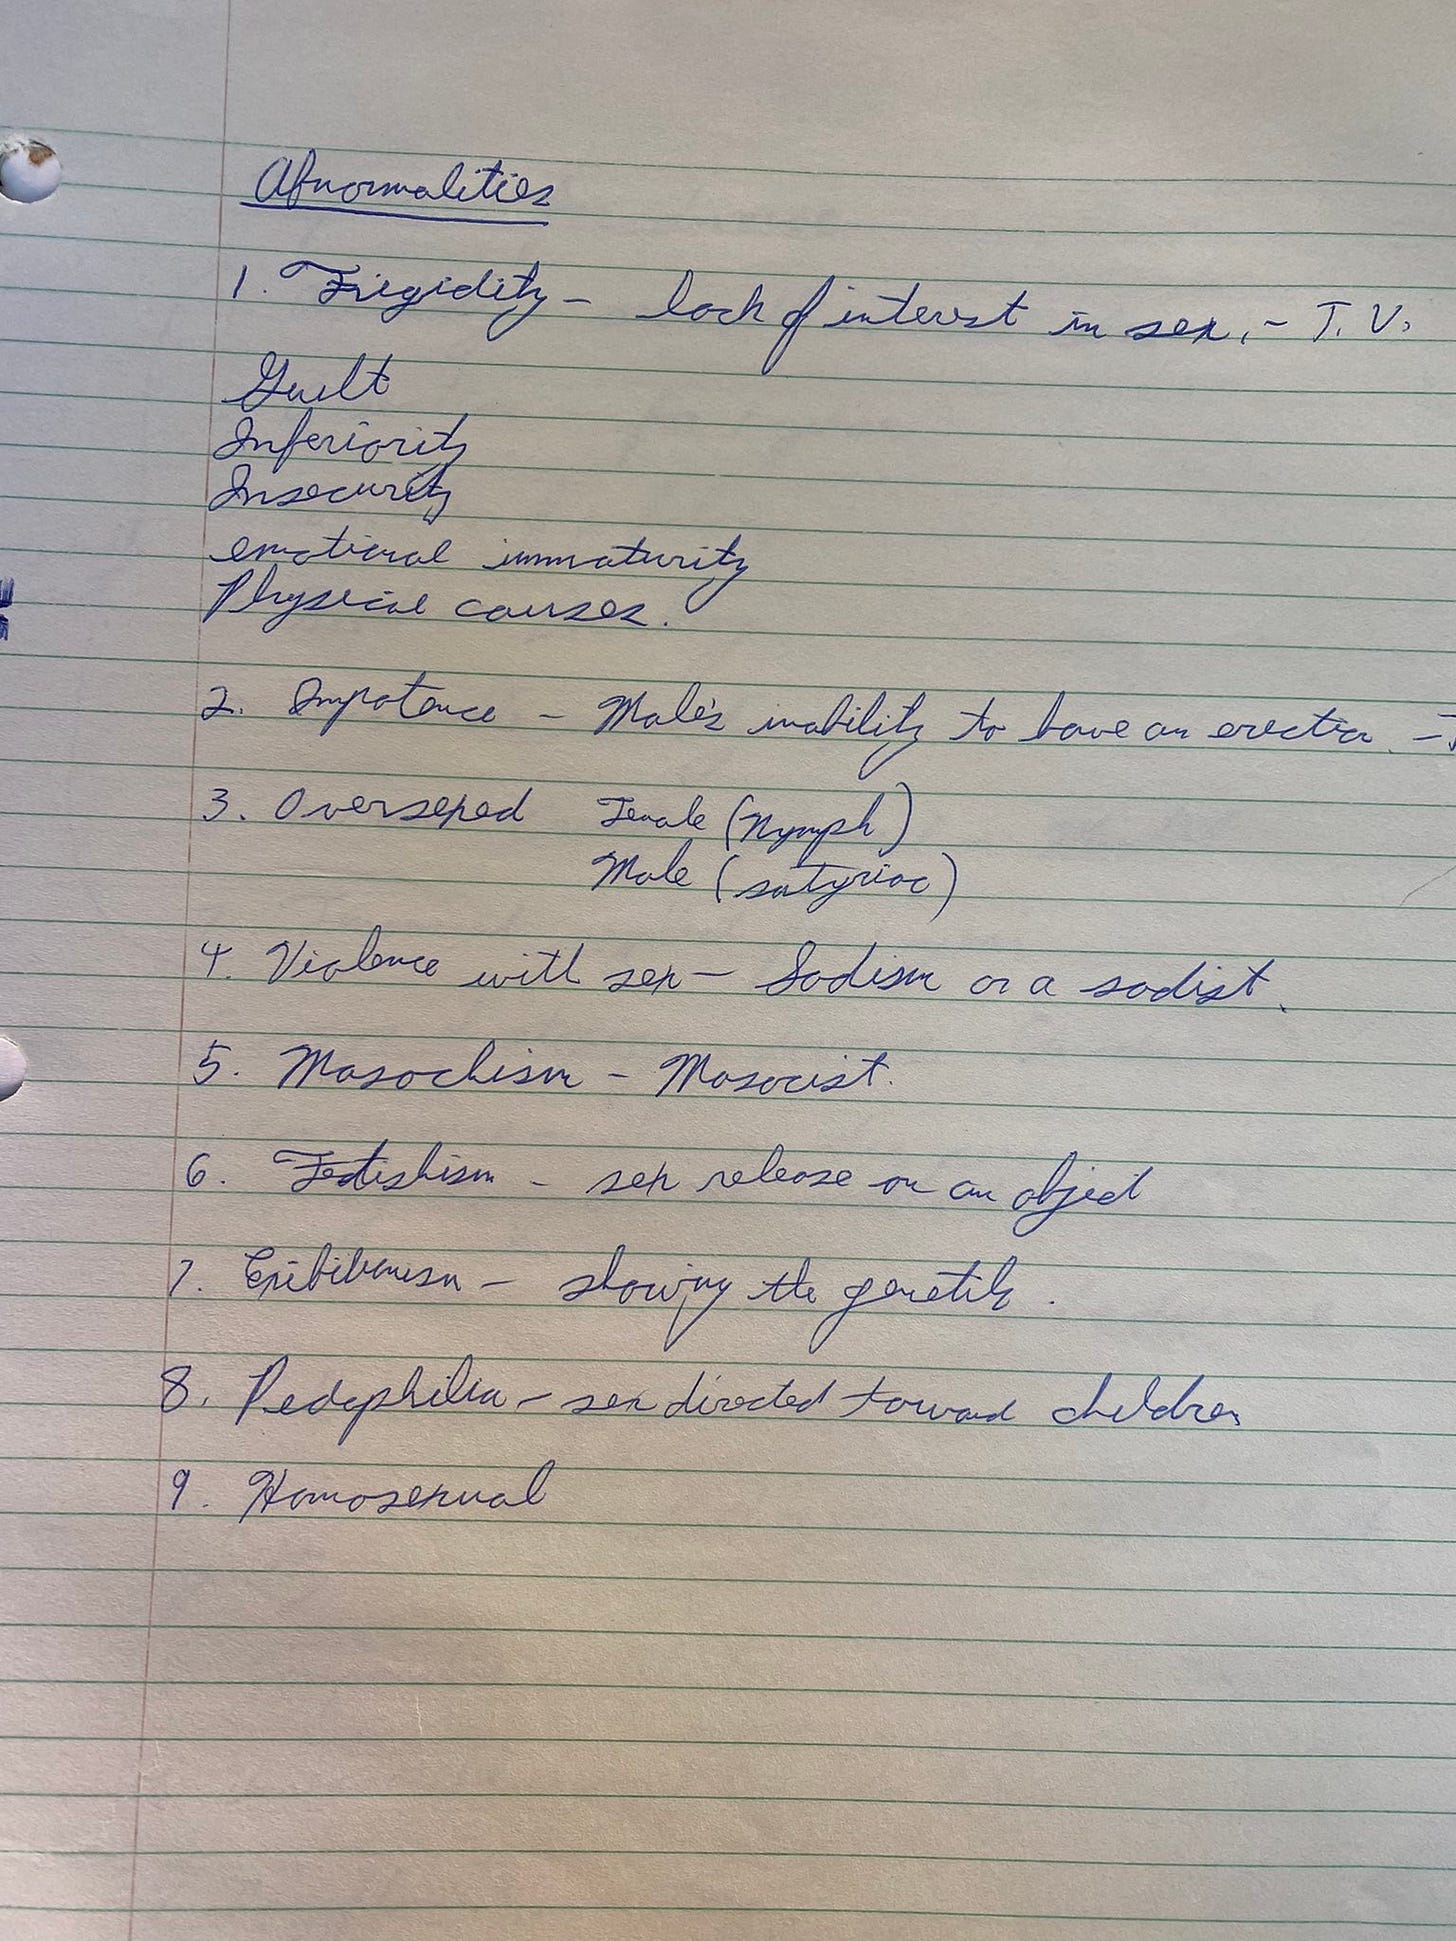 Abnormalities
1. Frigidity - lack of interest in sex. - T.V.
Guilt
Inferiority
Insecurity
emotional immaturity
Physical causes.
2. Impotence - Male's inability to have an erection. - T
3. Oversexed Female (Nymph)
Male (satyriac)
4. Violence with sex - Sadism or a sadist.
5. Masochism - Masocist.
6. Fetishism - sex release on an object
7. - showing the
8. Pedophilia - sex directed toward children
9. Homosexual